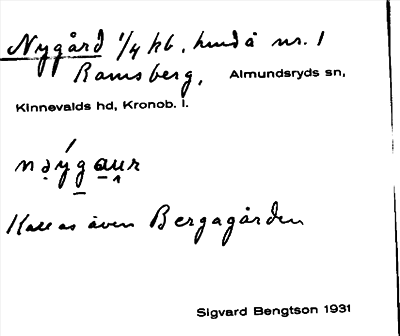 Nygård 1/4 hb. hund å nr. 1
Ramsberg, Almundsryds sn,
Kinnevalds hd, Kronob. l.
nə̣ýg au̯r
Kallas även Bergagården
Sigvard Bengtson 1931